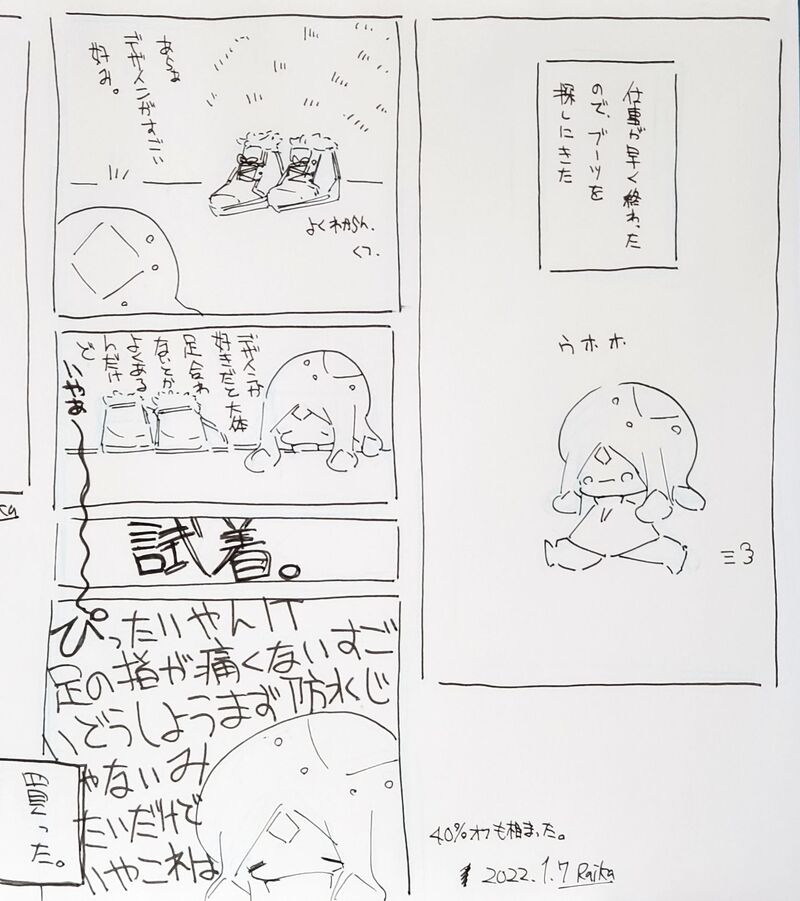 仕事が早く終わった
ので、ブーツを
探しにきた
ウホホ
あらぁ
デザインがすごい
好み。
よくわからん。
くつ。
デザインが
好きだと大体
足合わ
ないとか
よくある
んだけ
ど
いやぁ〜
試着。
ぴったいやん!?
足の指が痛くないすご
いどうしようまず防水じ
ゃないみ
たいだけで
いやこれは
買った。
40%オフも相まった。
2022.1.7 Raika